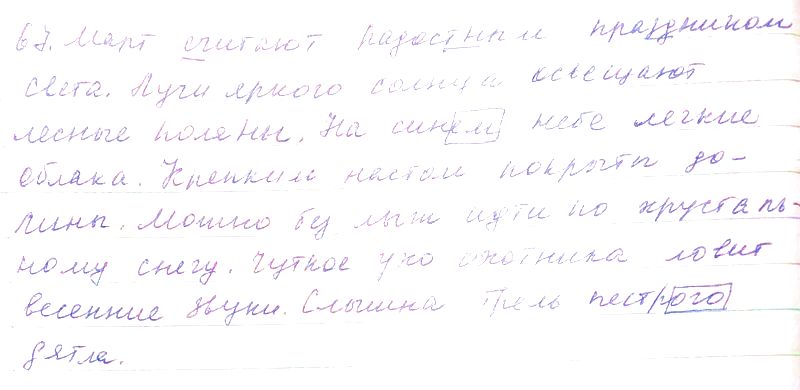 67. Март считают радостным праздником
света. Лучи яркого солнца освещают
лесные поляны. На синем небе легкие
облака. Крепким настом покрыты до-
лины. Можно без лыж идти по хрусталь-
ному снегу. Чуткое ухо охотника ловит
весенние звуки. Слышна трель пестрого
дятла.